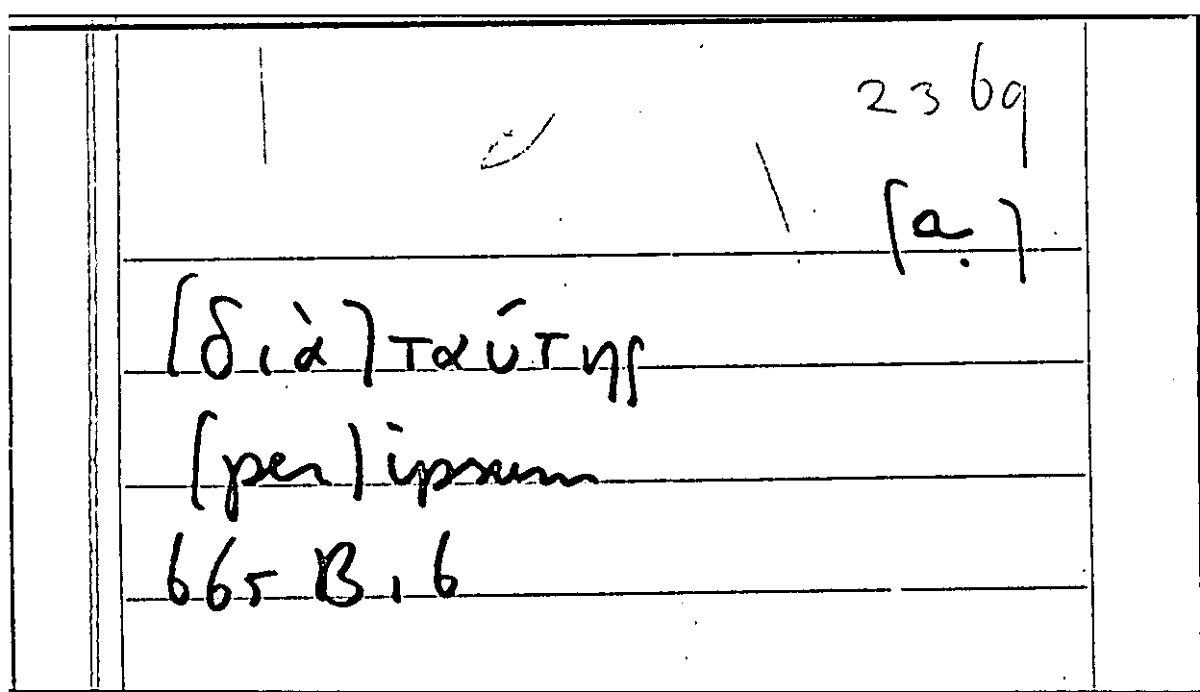 2369
(a.)
(διὰ) ταύτης
(per) ipsum
665 B, 6